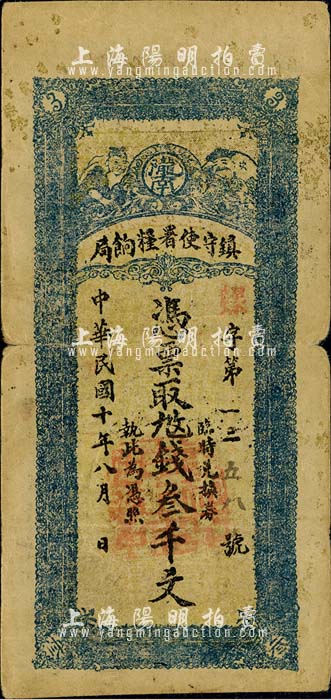 上海陽明拍賣
www.yangmingauction.com
3
3
漢南
鎮守使署糧餉局
字第一二五八號
憑票取抵錢叁千文
臨時兌換券
執此為憑照
中華民國十年八月 日
上海陽明拍賣
www.yangmingauction.com